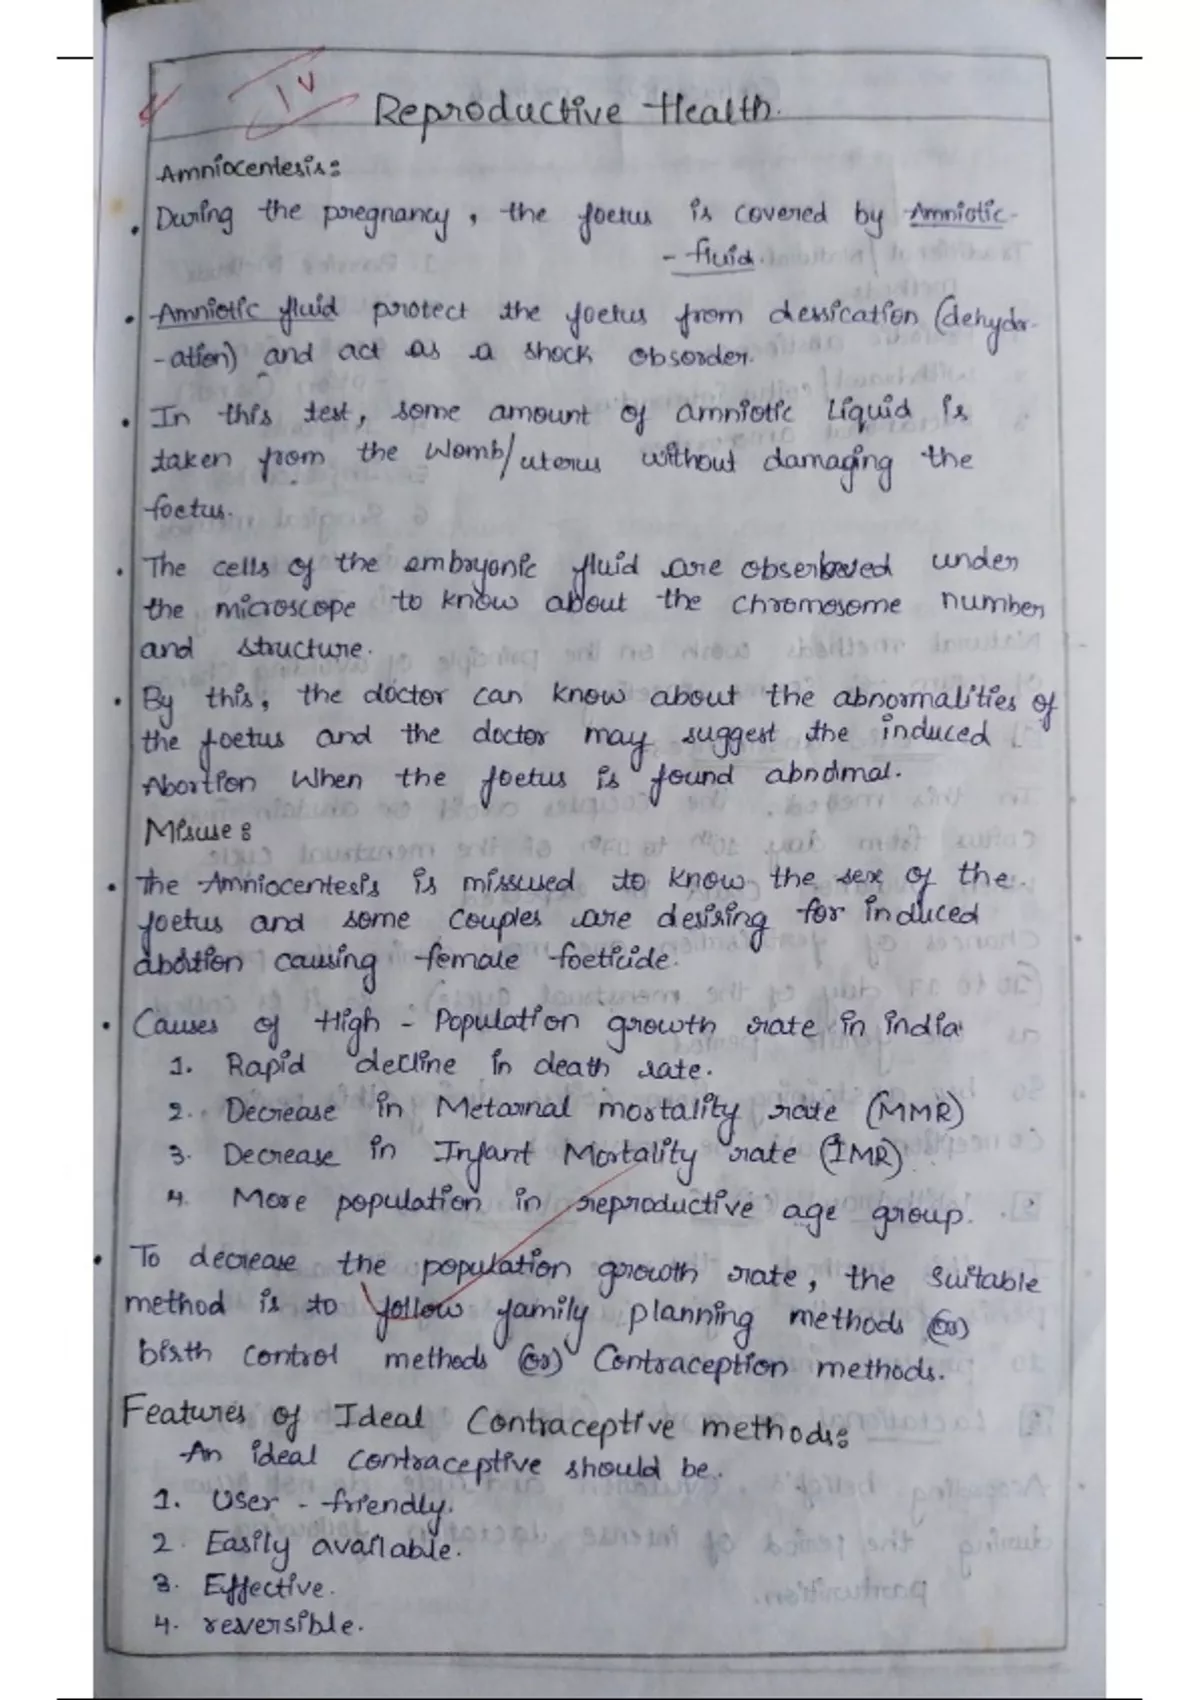 IV
Reproductive Health.
Amniocentesis:
• During the pregnancy, the foetus is covered by Amniotic-
- fluid.
• Amniotic fluid protect the foetus from dessication (dehydr-
-ation) and act as a shock obsorder.
• In this test, some amount of amniotic liquid is
taken from the womb/uterus without damaging the
foetus.
• The cells of the embryonic fluid are observed under
the microscope to know about the chromosome number
and structure.
• By this, the doctor can know about the abnormalities of
the foetus and the doctor may suggest the induced
Abortion when the foetus is found abnormal.
Misuse:
• The Amniocentesis is missused to know the sex of the.
foetus and some couples are desising for induced
abortion causing female foeticide.
• Causes of High - Population growth rate in india
1. Rapid decline in death rate.
2. Decrease in Metarnal mortality rate (MMR)
3. Decrease in Infant Mortality rate (IMR)
4. More population in reproductive age group.
• To decrease the population growth rate, the suitable
method is to follow family planning methods (or)
birth control methods (or) Contraception methods.
Features of Ideal Contraceptive methods:
An ideal contraceptive should be.
1. User - friendly.
2. Easily available.
3. Effective.
4. reversible.